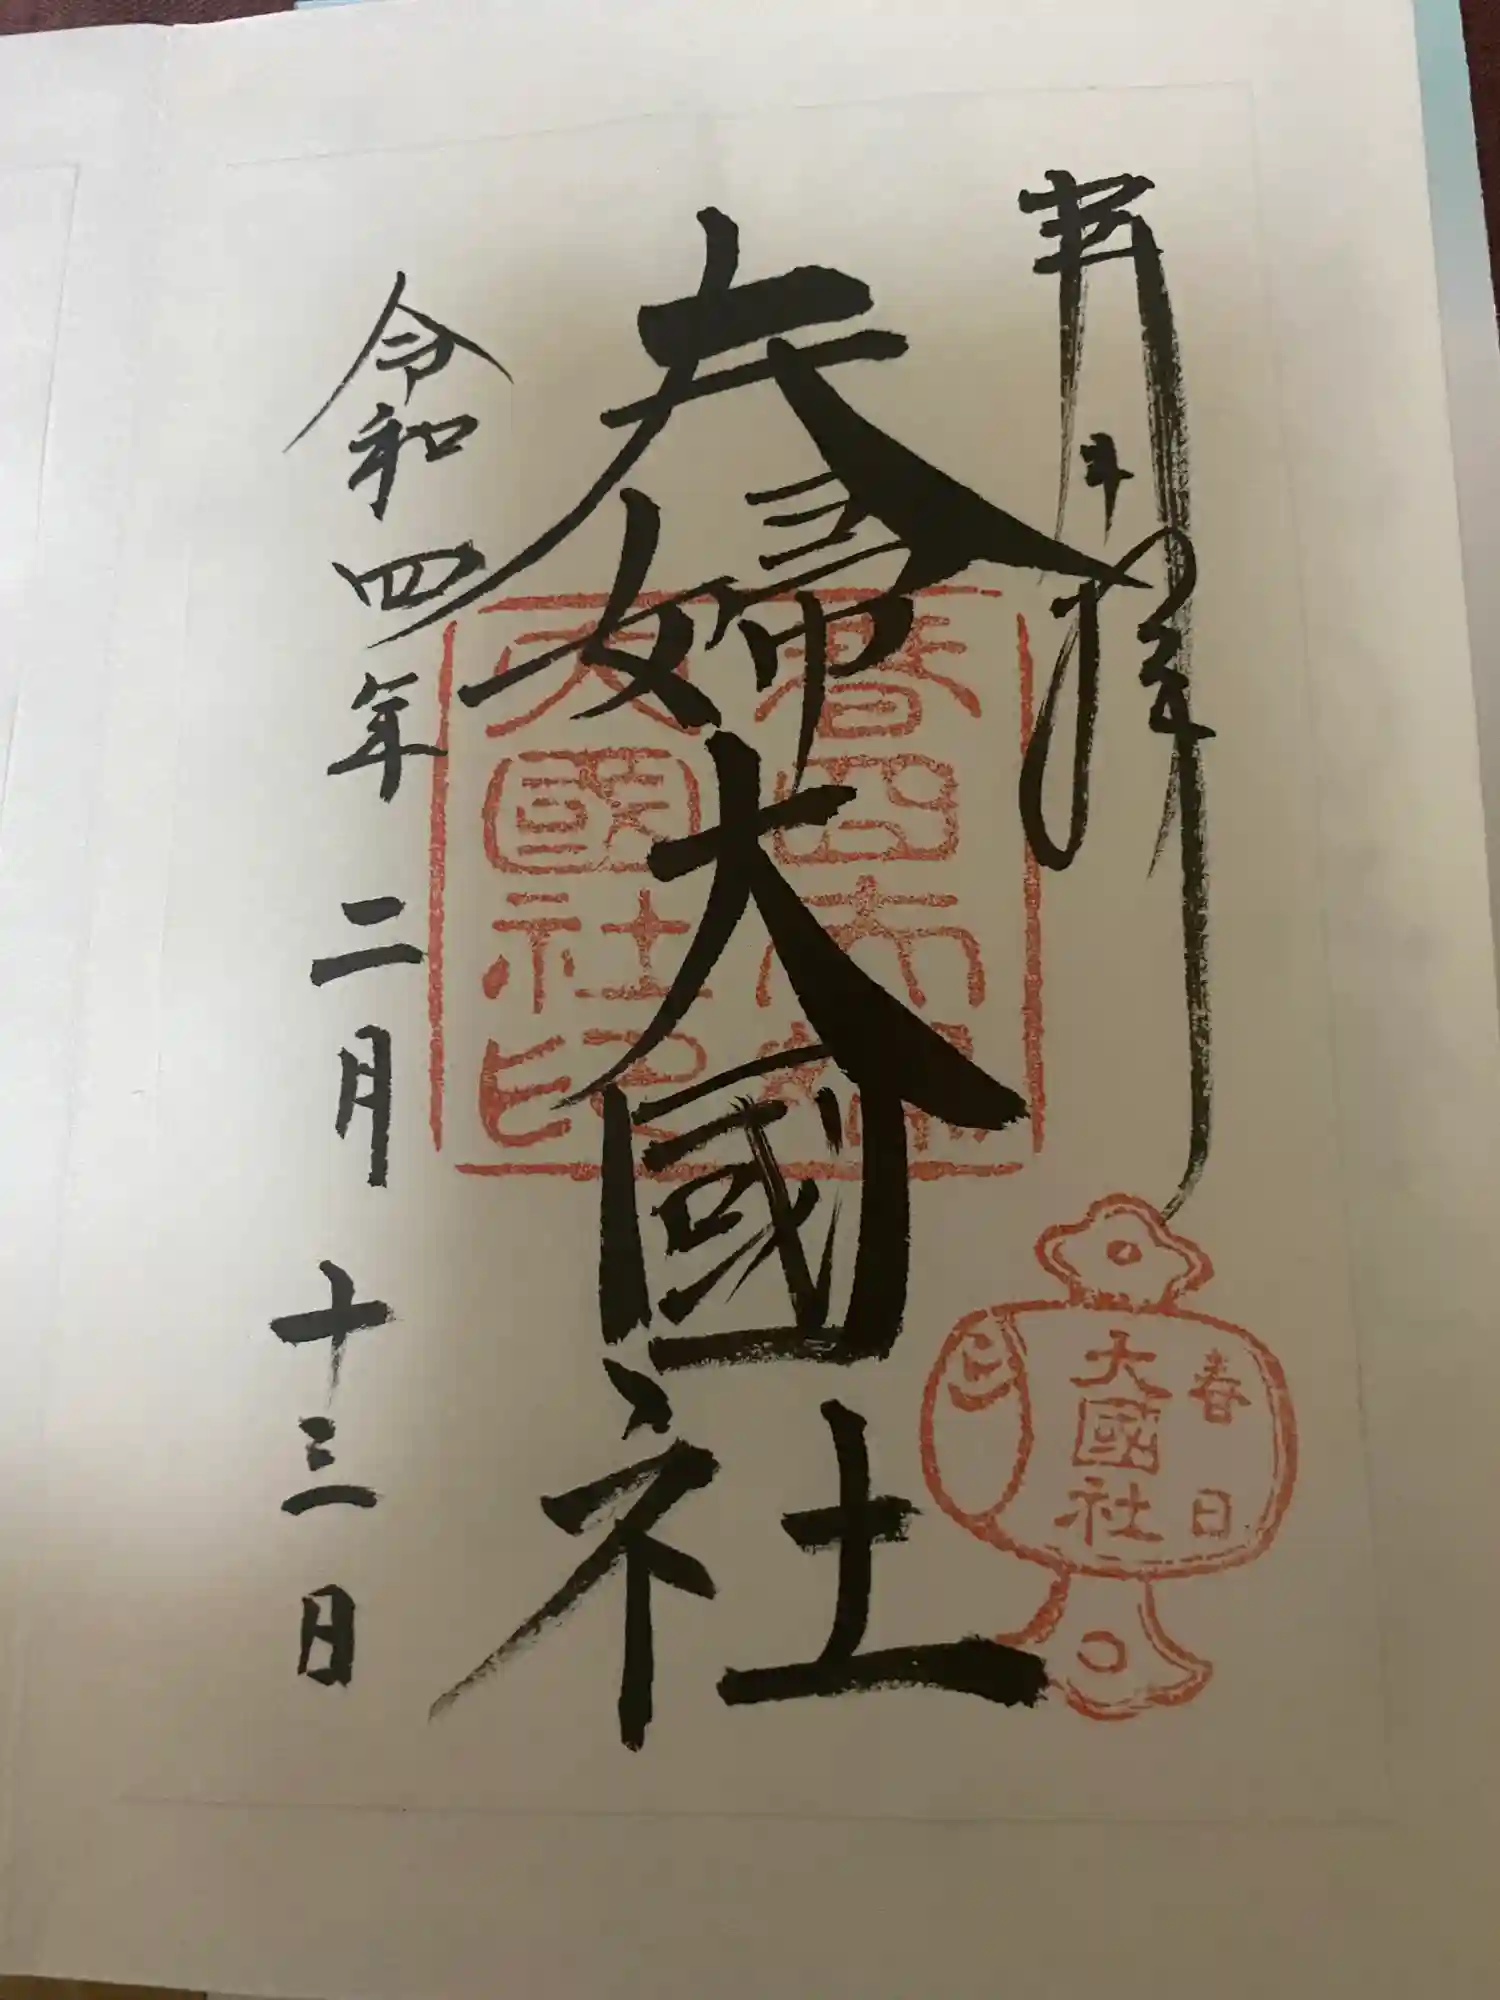 奉拝
夫婦大國社
令和四年二月十三日
大國社印
春日
大國社